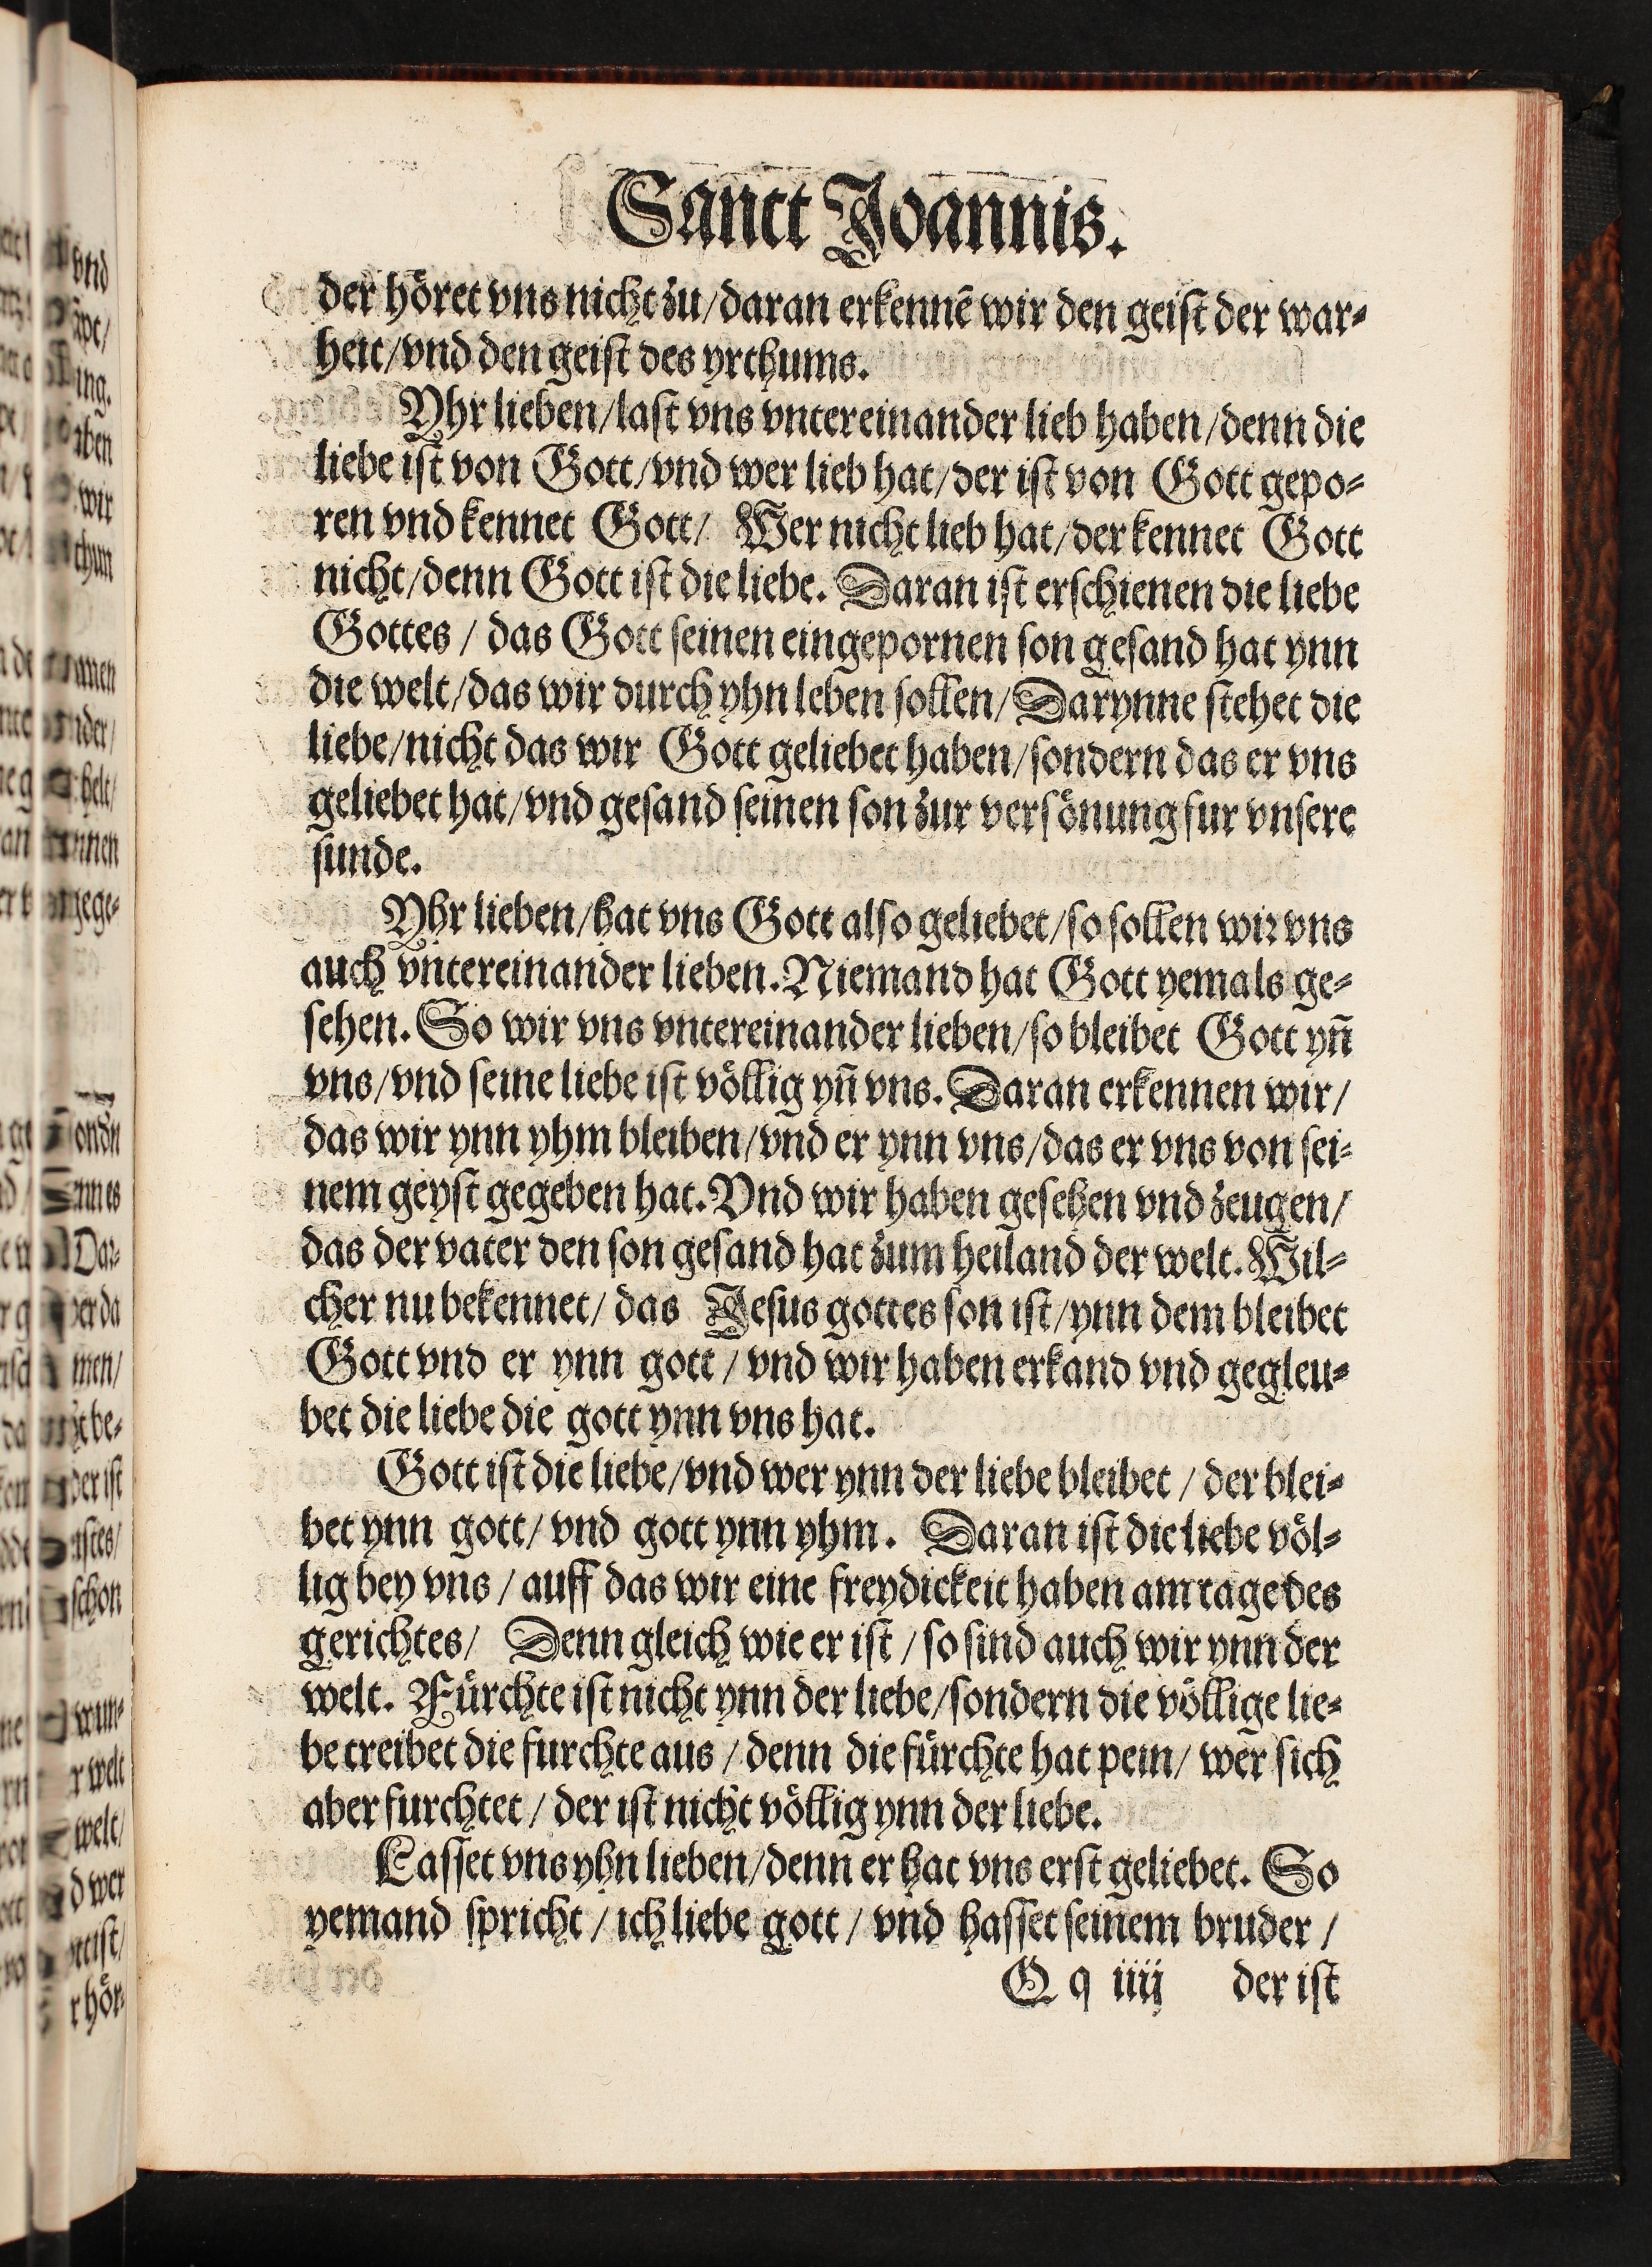 Sanct Joannis.
der höret vns nicht zu/daran erkennē wir den geist der war⸗
heit/vnd den geist des yrthums.
Yhr lieben/last vns vntereinander lieb haben/denn die
liebe ist von Gott/vnd wer lieb hat/der ist von Gott gepo⸗
ren vnd kennet Gott/ Wer nicht lieb hat/der kennet Gott
nicht/denn Gott ist die liebe. Daran ist erschienen die liebe
Gottes / das Gott seinen eingepornen son gesand hat ynn
die welt/das wir durch yhn leben sollen/Darynne stehet die
liebe/nicht das wir Gott geliebet haben/sondern das er vns
geliebet hat/vnd gesand seinen son zur versönung fur vnsere
sunde.
Yhr lieben/hat vns Gott also geliebet/so sollen wir vns
auch vntereinander lieben. Niemand hat Gott yemals ge⸗
sehen. So wir vns vntereinander lieben/so bleibet Gott yn̄
vns/vnd seine liebe ist völlig yn̄ vns. Daran erkennen wir/
das wir ynn yhm bleiben/vnd er ynn vns/das er vns von sei⸗
nem geyst gegeben hat. Vnd wir haben gesehen vnd zeugen/
das der vater den son gesand hat zum heiland der welt. Wil⸗
cher nu bekennet/ das Jesus gottes son ist/ynn dem bleibet
Gott vnd er ynn gott / vnd wir haben erkand vnd gegleu⸗
bet die liebe die gott ynn vns hat.
Gott ist die liebe/vnd wer ynn der liebe bleibet / der blei⸗
bet ynn gott/ vnd gott ynn yhm. Daran ist die liebe völ⸗
lig bey vns / auff das wir eine freydickeit haben am tage des
gerichtes/ Denn gleich wie er ist / so sind auch wir ynn der
welt. Fürchte ist nicht ynn der liebe/sondern die völlige lie⸗
be treibet die furchte aus / denn die fürchte hat pein/ wer sich
aber furchtet / der ist nicht völlig ynn der liebe.
Lasset vns yhn lieben/denn er hat vns erst geliebet. So
yemand spricht / ich liebe gott / vnd hasset seinem bruder /
Q q iiij der ist